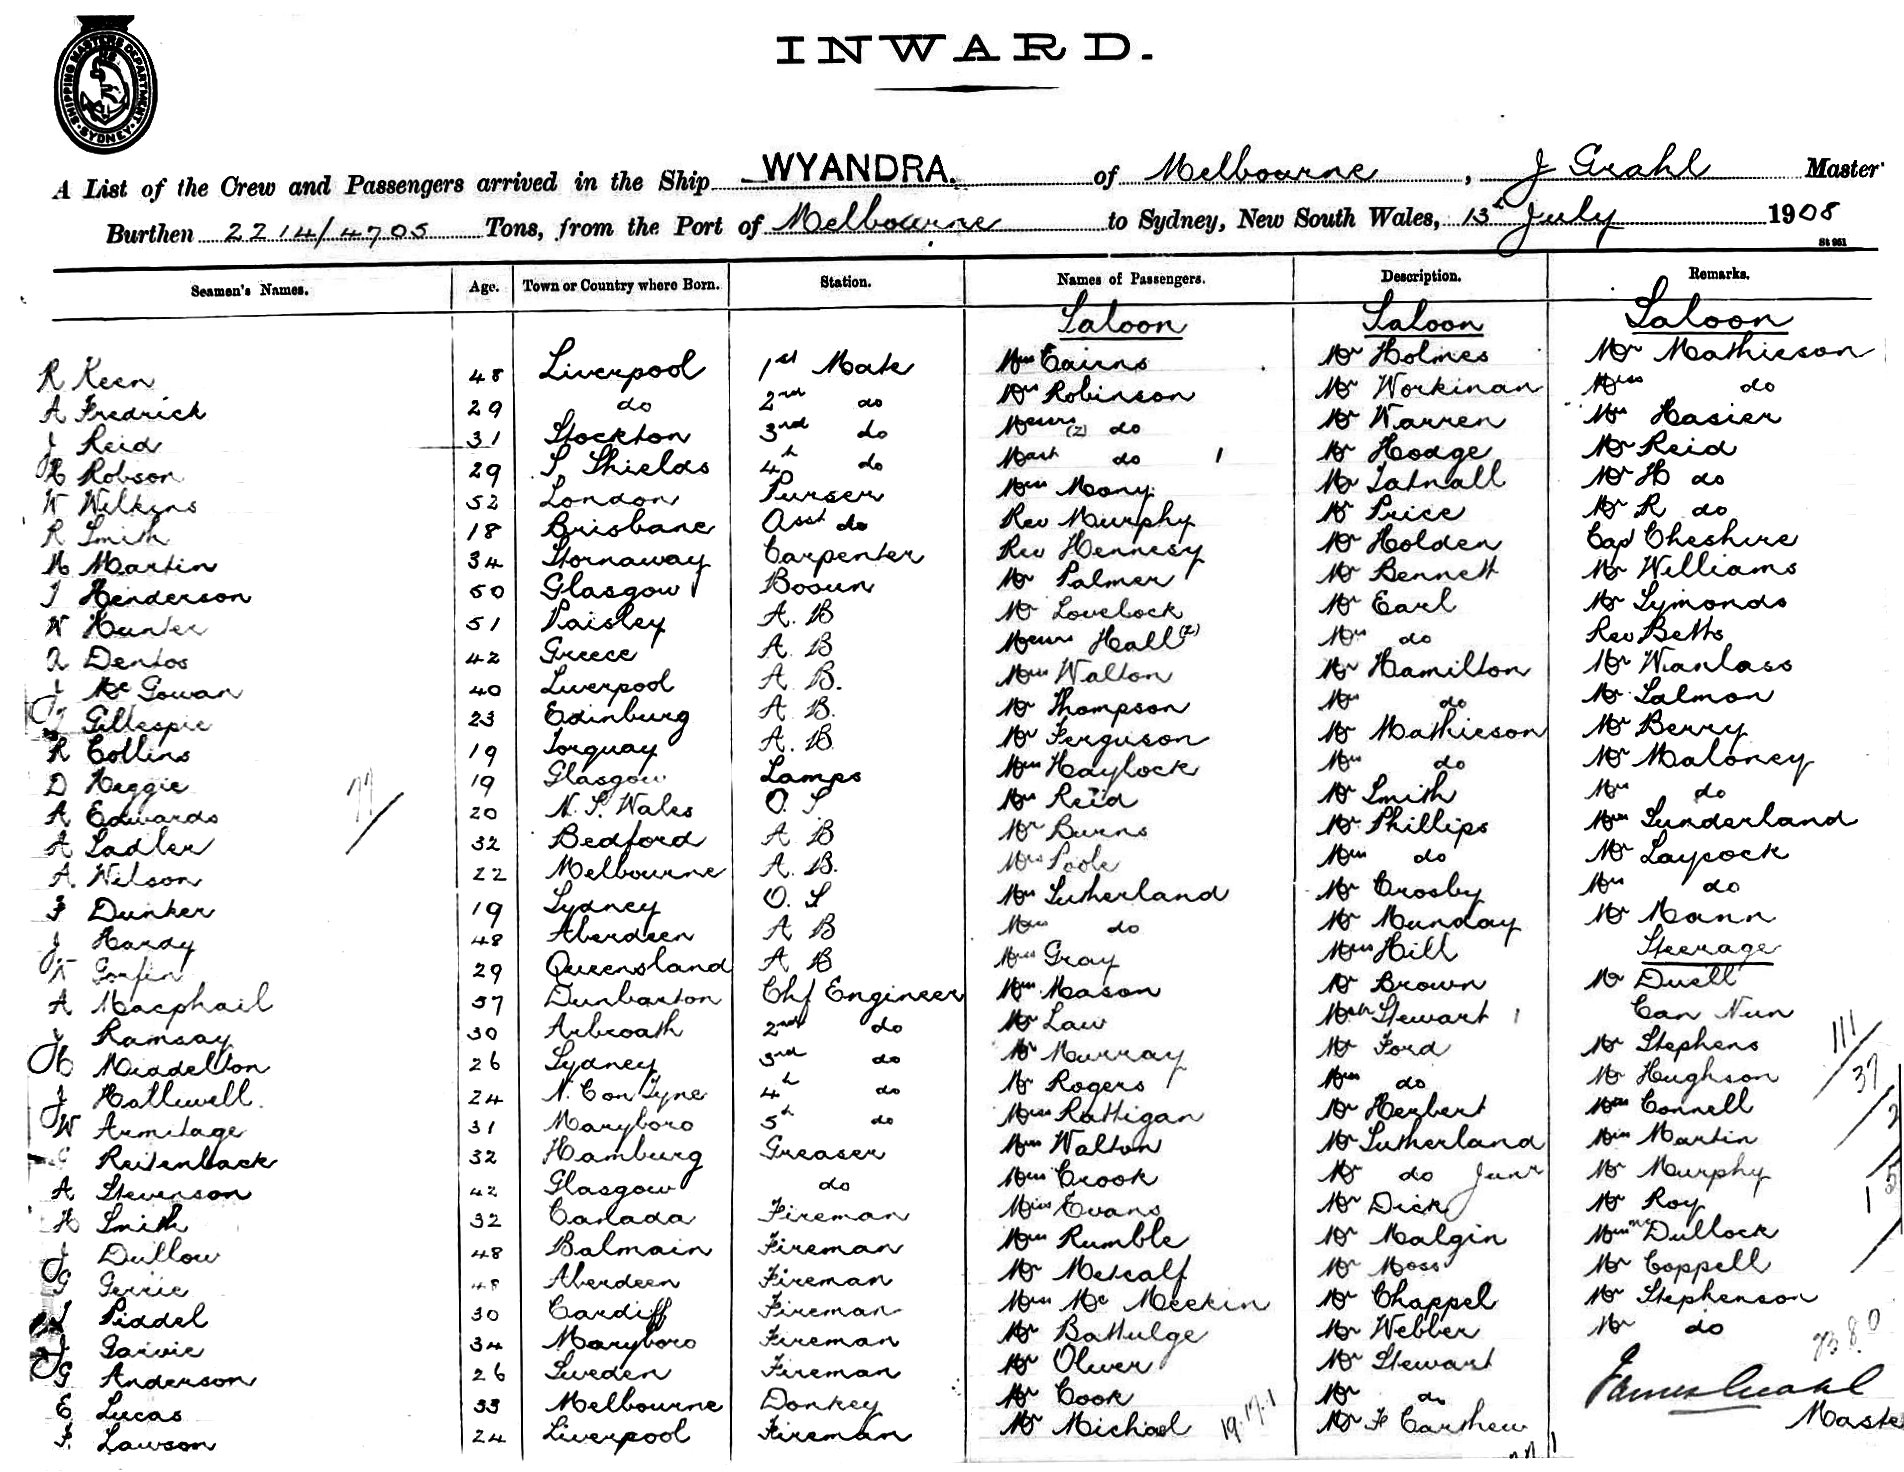 SHIPPING MASTERS DEPARTMENT. SYDNEY
INWARD.
A List of the Crew and Passengers arrived in the Ship WYANDRA. of Melbourne, J Grahl Master
Burthen 2214/4705 Tons, from the Port of Melbourne to Sydney, New South Wales, 13th July 1908
St 961
Seamen's Names. Age. Town or Country where Born. Station. Names of Passengers. Description. Remarks.
Saloon Saloon Saloon
R Keen 48 Liverpool 1st Mate Mrs Cairns Mr Holmes Mr Mathieson
A Fredrick 29 do 2nd do Mrs Robinson Mr Workman Miss do
J Reid 31 Stockton 3rd do Messrs (2) do Mr Warren Mrs Hasier
R Robson 29 S. Shields 4th do Mast do 1 Mr Hodge Mr Reid
W Wilkins 52 London Purser Miss Mony Mr Tatnall Mr H do
R Smith 18 Brisbane Asst do Rev Murphy Mr Price Mr R do
M Martin 34 Stornaway Carpenter Rev Hennesy Mr Holden Cap Cheshire
J Henderson 50 Glasgow Bosun Mr Palmer Mr Bennett Mr Williams
W Hunter 51 Paisley A. B Mr Lovelock Mr Earl Mr Symonds
A Dentos 42 Greece A. B Messrs Hall (2) Mrs do Rev Betts
J McGowan 40 Liverpool A B. Miss Walton Mr Hamilton Mr Wanlass
J Gillespie 23 Edinburg A B. Mr Thompson Mrs do Mr Salmon
R Collins 19 Torquay A. B Mr Ferguson Mr Mathieson Mr Berry
D Heggie 19 Glasgow Lamps Miss Haylock Mrs do Mr Maloney
A Edwards 20 N. S. Wales O. S Mrs Reid Mr Smith Mrs do
A Sadler 32 Bedford A B Mr Burns Mr Phillips Miss Sunderland
A. Wilson 22 Melbourne A. B. Mrs Poole Miss do Mr Laycock
F Dunker 19 Sydney O. S Mrs Sutherland Mr Crosby Mrs do
J Hardy 48 Aberdeen A B Miss do Mr Munday Mr Mann
K Gorfin 29 Queensland A B Miss Gray Miss Hill Steerage
A Macphail 57 Dunbarton Chf Engineer Miss Mason Mr Brown Mr Duell
J Ramsay 30 Arbroath 2nd do Mr Law Mstr Stewart 1 Can Nun
H Middelton 26 Sydney 3rd do Mr Murray Mr Ford Mr Stephens
J Hallewell. 24 N. C on Tyne 4th do Mr Rogers Miss do Mr Hughson
W Armitage 31 Maryboro 5th do Miss Rattigan Mr Herbert Miss Connell
G Reitenback 32 Hamburg Greaser Miss Walton Mr Sutherland Miss Martin
A Stevenson 42 Glasgow do Miss Crook Mr do Junr Mr Murphy
H Smith 32 Canada Fireman Miss Evans Mr Dick Mr Roy
J Dullow 48 Balmain Fireman Miss Rumble Mr Malgin Dullock
G Gerrie 48 Aberdeen Fireman Mr Metcalf Mr Moss Mr Coppell
J Piddel 30 Cardiff Fireman Miss McMeekin Mr Chappel Mr Stephenson
J Garvie 34 Maryboro Fireman Mr Battulge Mr Webber Mr do
G Anderson 26 Sweden Fireman Mr Oliver Mr Stewart James Grahl
E Lucas 33 Melbourne Donkey Mr Cook Mr do Maste
F. Lawson 24 Liverpool Fireman Mr Michael Mr F Carthew
77
111
37
19.17.1